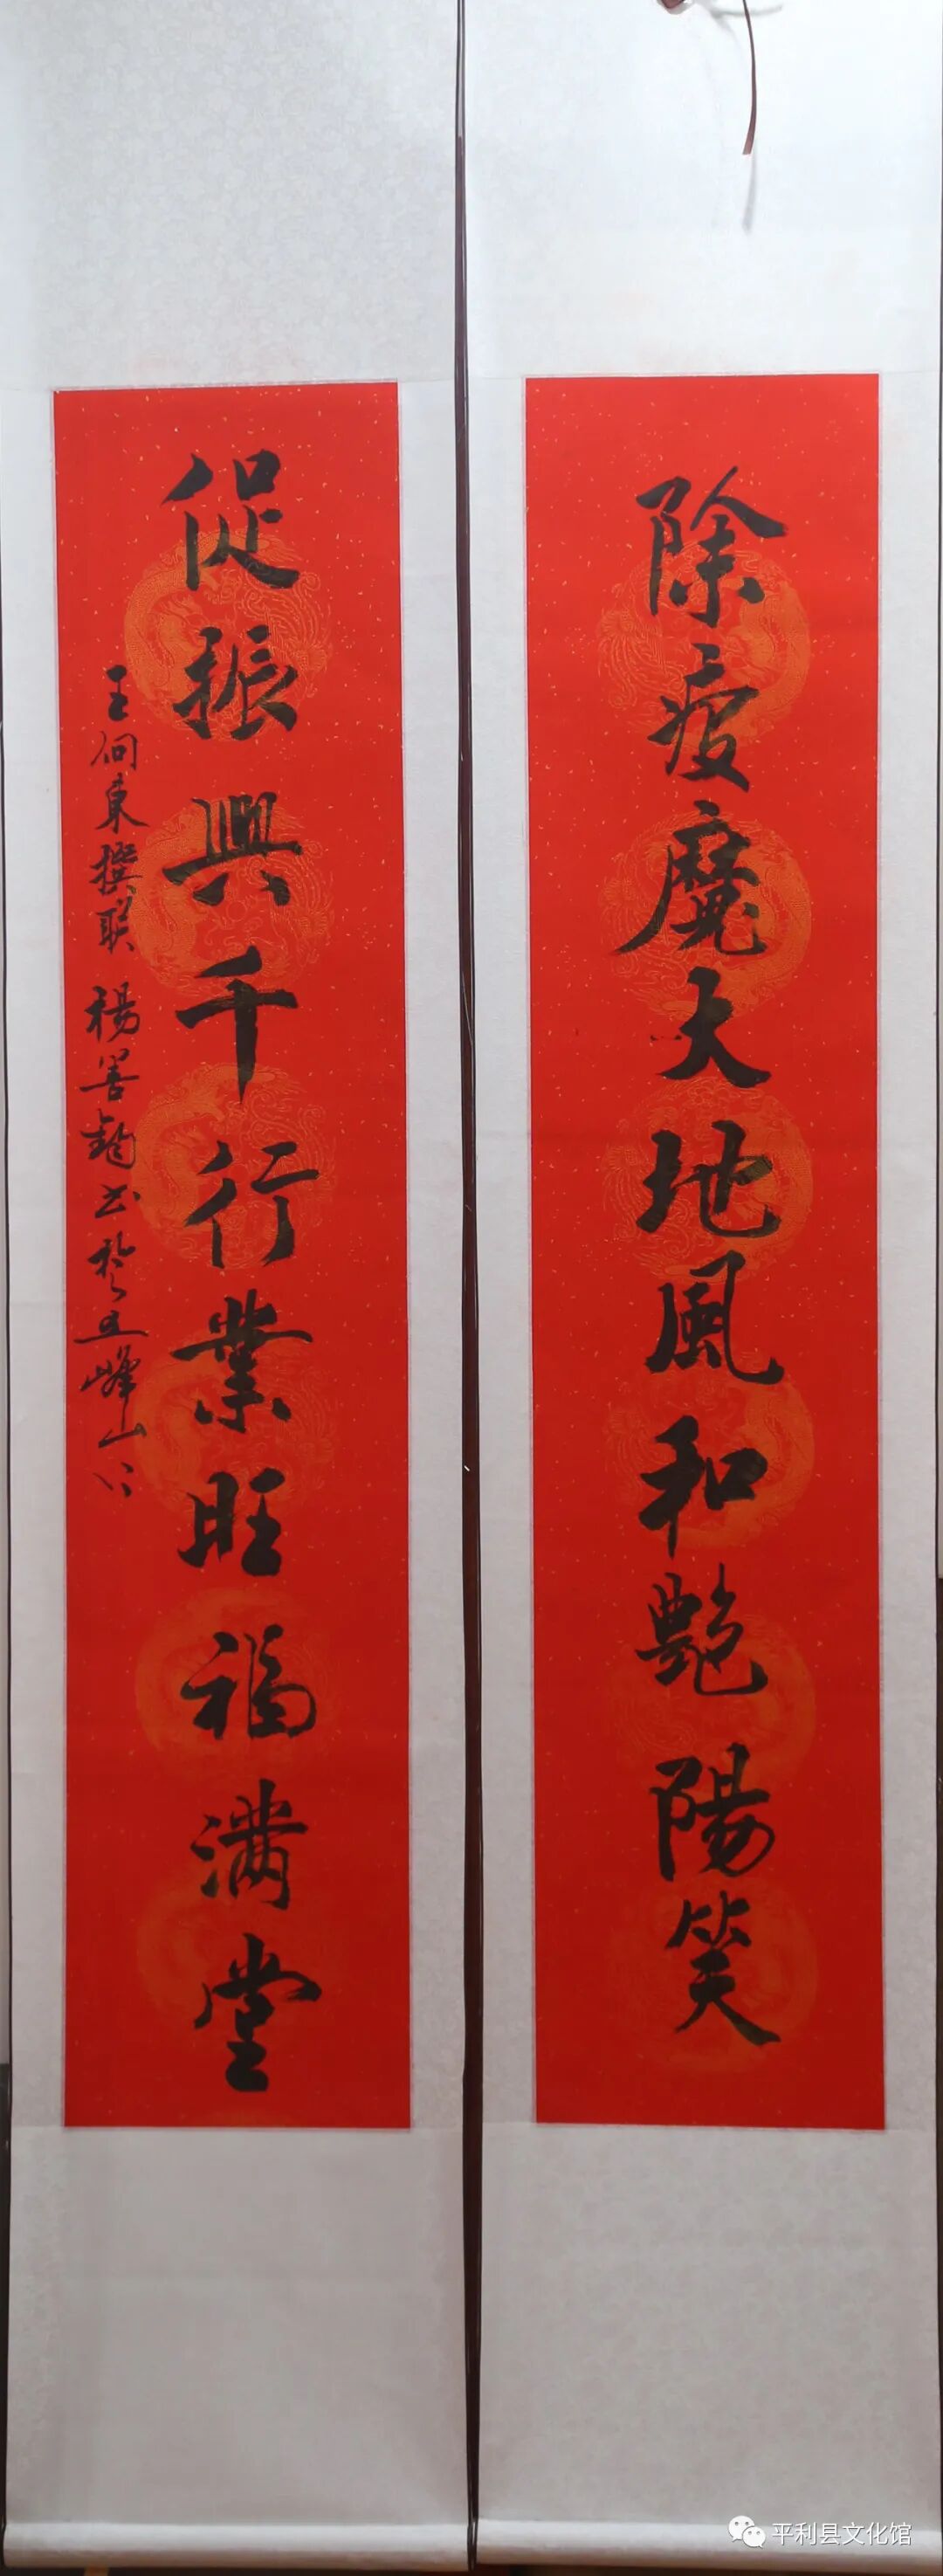 除疫魔大地風和艷陽笑
促振興千行業旺福满堂
王向東撰联 楊善鈞书於五峰山下
平利县文化馆